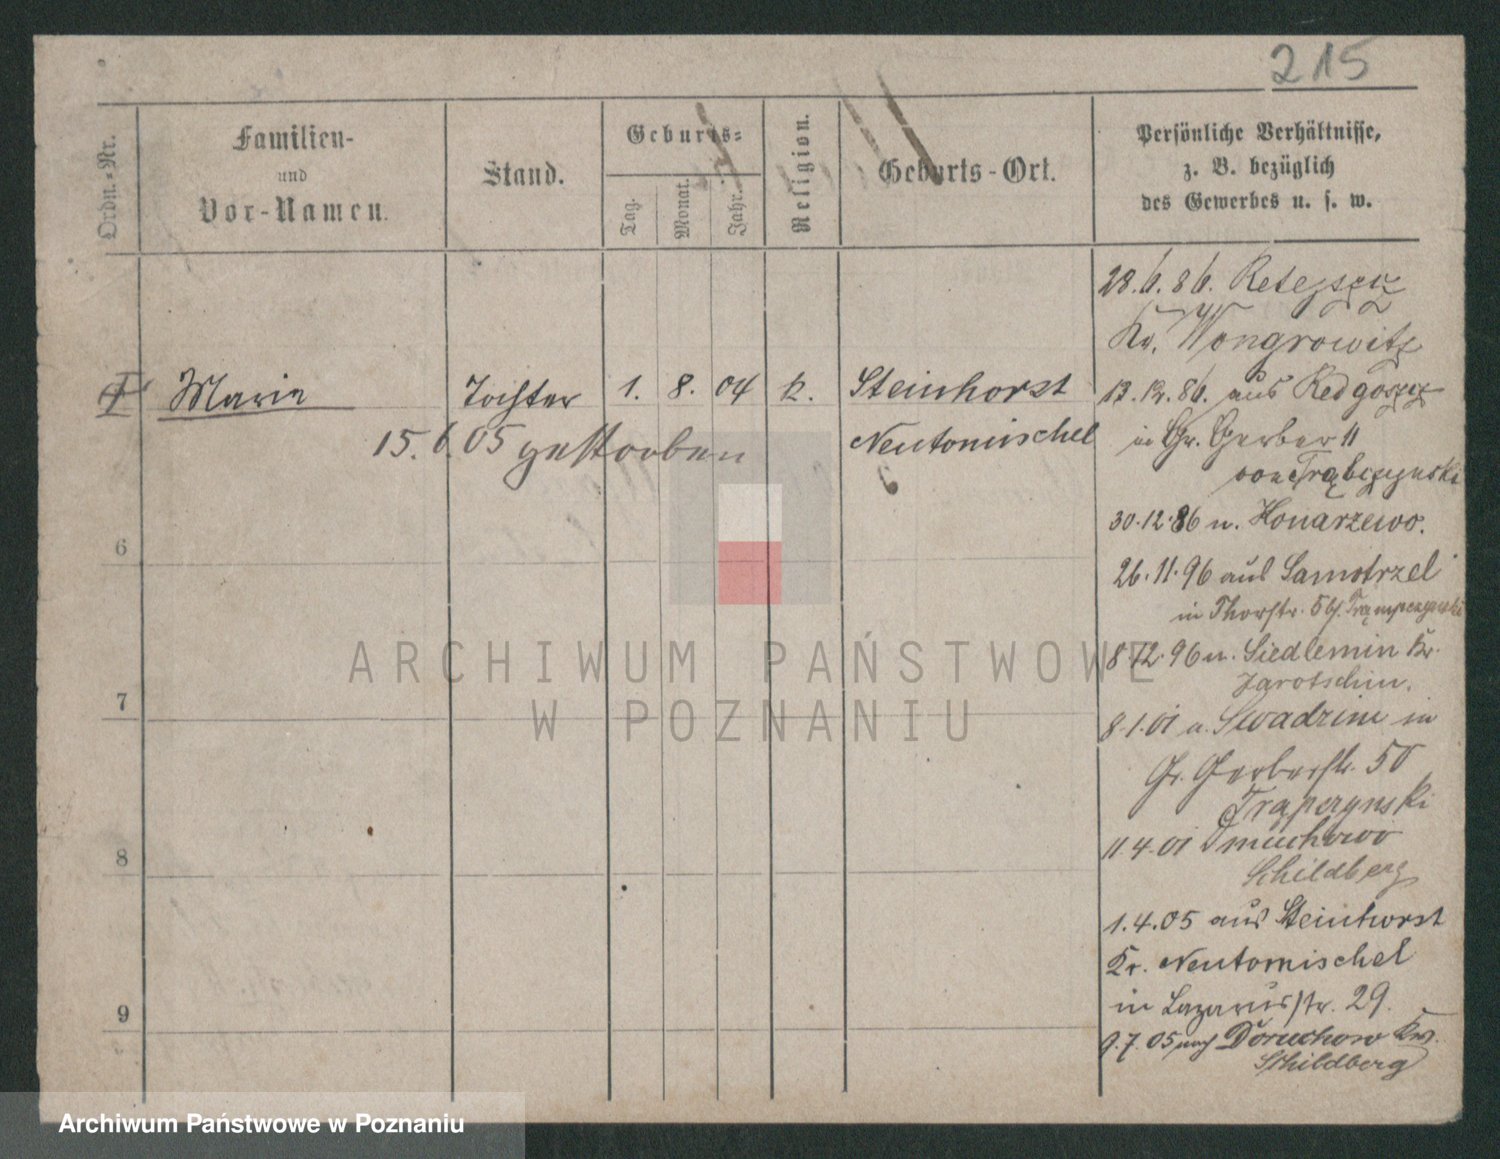 215
Ordn.-Nr.
Familien-
und
Vor-Namen.
Stand.
Geburts-
Tag.
Monat.
Jahr.
Religion.
Geburts-Ort.
Persönliche Verhältnisse,
z. B. bezüglich
des Gewerbes u. s. w.
Marie Tochter 1. 8. 04 k. Steinhorst
15. 6. 05 gestorben Neutomischel
6
7
8
9
28.6.86. Retezscz
Kr. Wongrowitz
13.12.86. aus Redgoszcz
in Gr. Gerber 11
von Trąbczynski
30.12.86 n. Konarzewo.
26.11.96 aus Samotrzel
in Thorstr. 5 bf. Trąmpczynski
8.12.96 n. Siedlemin Kr.
Jarotschin.
8.1.01 a. Swadzim in
Gr. Gerberstr. 50
Trąpczynski
11.4.01
Schildberg
1.4.05 aus Steinhorst
Kr. Neutomischel
in Lazarusstr. 29.
9.7.05 nach Doruchowo Kr.
Schildberg
ARCHIWUM PAŃSTWOWE
W POZNANIU
Archiwum Państwowe w Poznaniu